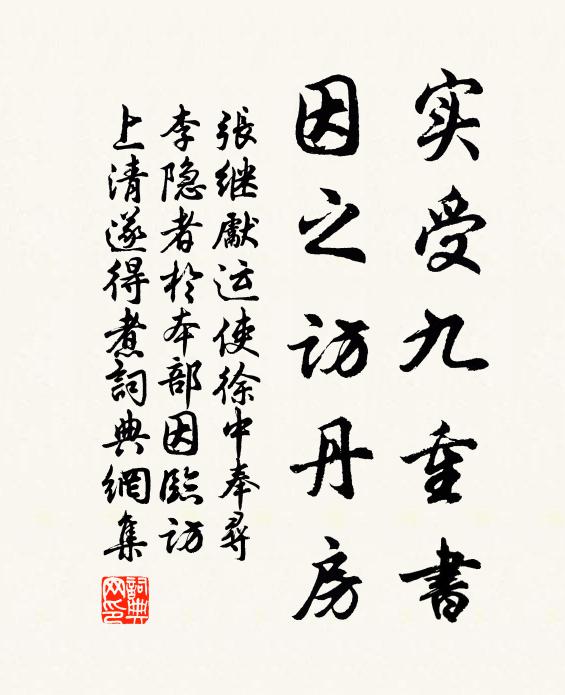 实受九重書
因之访丹房
張继獻运使徐中奉尋
李隐者於本部因臨访
上清遂得煮詞典網集
詞典
网印